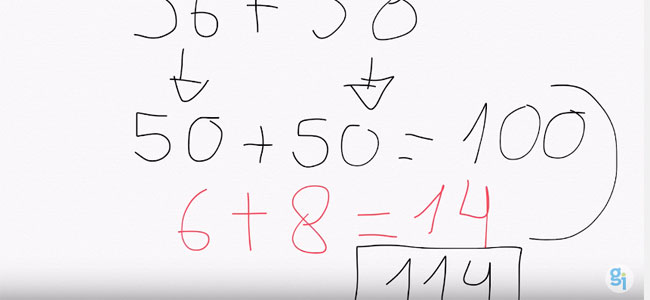 56 + 58
50 + 50 = 100
6 + 8 = 14
114
gi